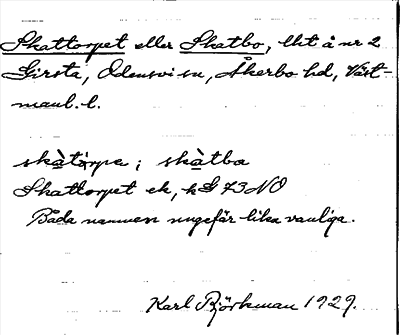 Skattorpet eller Skatbo, lht å nr 2
Girsta, Odensvi sn, Åkerbo hd, Väst-
manl. l.
skàtårpe; skàtbo
Skattorpet ek, kG 73 NO
Båda namnen ungefär lika vanliga.
Karl Björkman 1929.